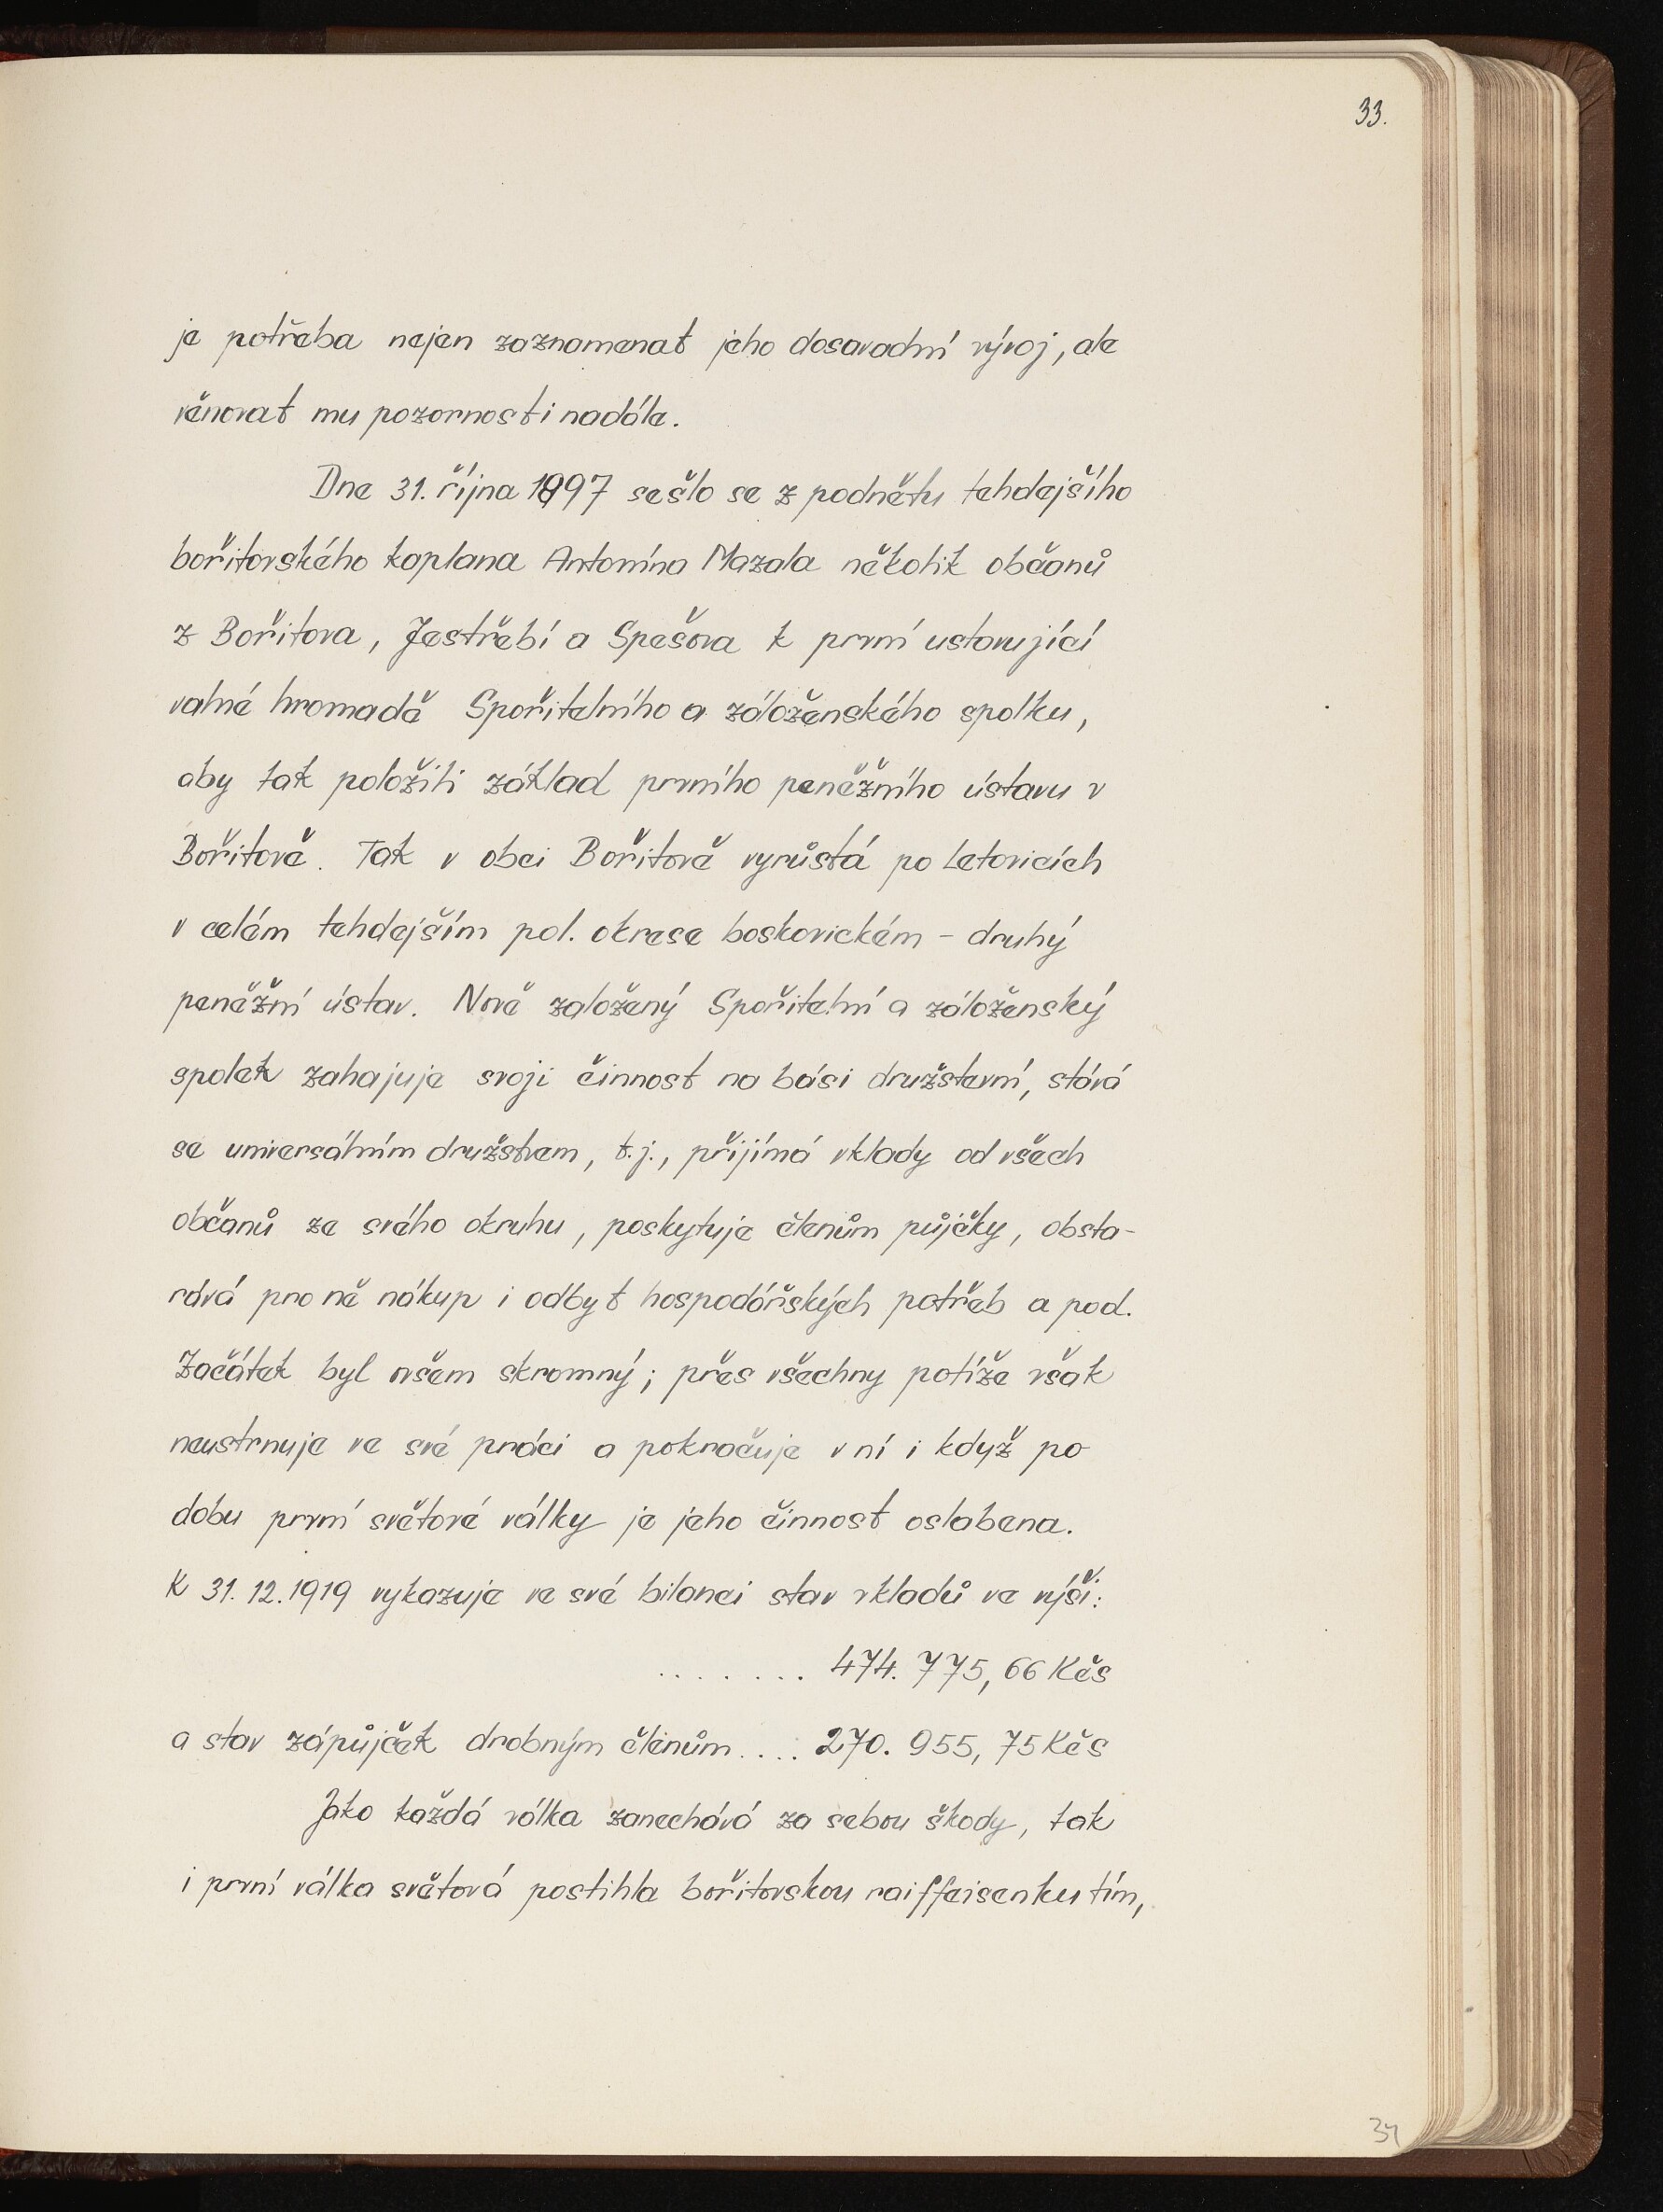 33.
je potřeba nejen zaznamenat jeho dosavadní vývoj, ale
věnovat mu pozornosti nadále.
Dne 31. října 1897 sešlo se z podnětu tehdejšího
bořitovského kaplana Antonína Mazala několik občanů
z Bořitova, Jestřebí a Spešova k první ustavující
valné hromadě Spořitelního a záloženského spolku,
aby tak položili základ prvního peněžního ústavu v
Bořitově. Tak v obci Bořitově vyrůstá po Letovicích
v celém tehdejším pol. okrese boskovickém - druhý
peněžní ústav. Nově založený Spořitelní a záloženský
spolek zahajuje svoji činnost na bási družstevní, stává
se universálním družstvem, t.j., přijímá vklady od všech
občanů ze svého okruhu, poskytuje členům půjčky, obsta-
rává pro ně nákup i odbyt hospodářských potřeb a pod.
Začátek byl ovšem skromný; přes všechny potíže však
neustrnuje ve své práci a pokračuje v ní i když po
dobu první světové války je jeho činnost oslabena.
K 31. 12. 1919 vykazuje ve své bilanci stav vkladů ve výši:
........ 474. 775, 66 Kčs
a stav zápůjček drobným členům .... 270. 955, 75 Kčs
Jako každá válka zanechává za sebou škody, tak
i první válka světová postihla bořitovskou raiffeisenku tím,
34